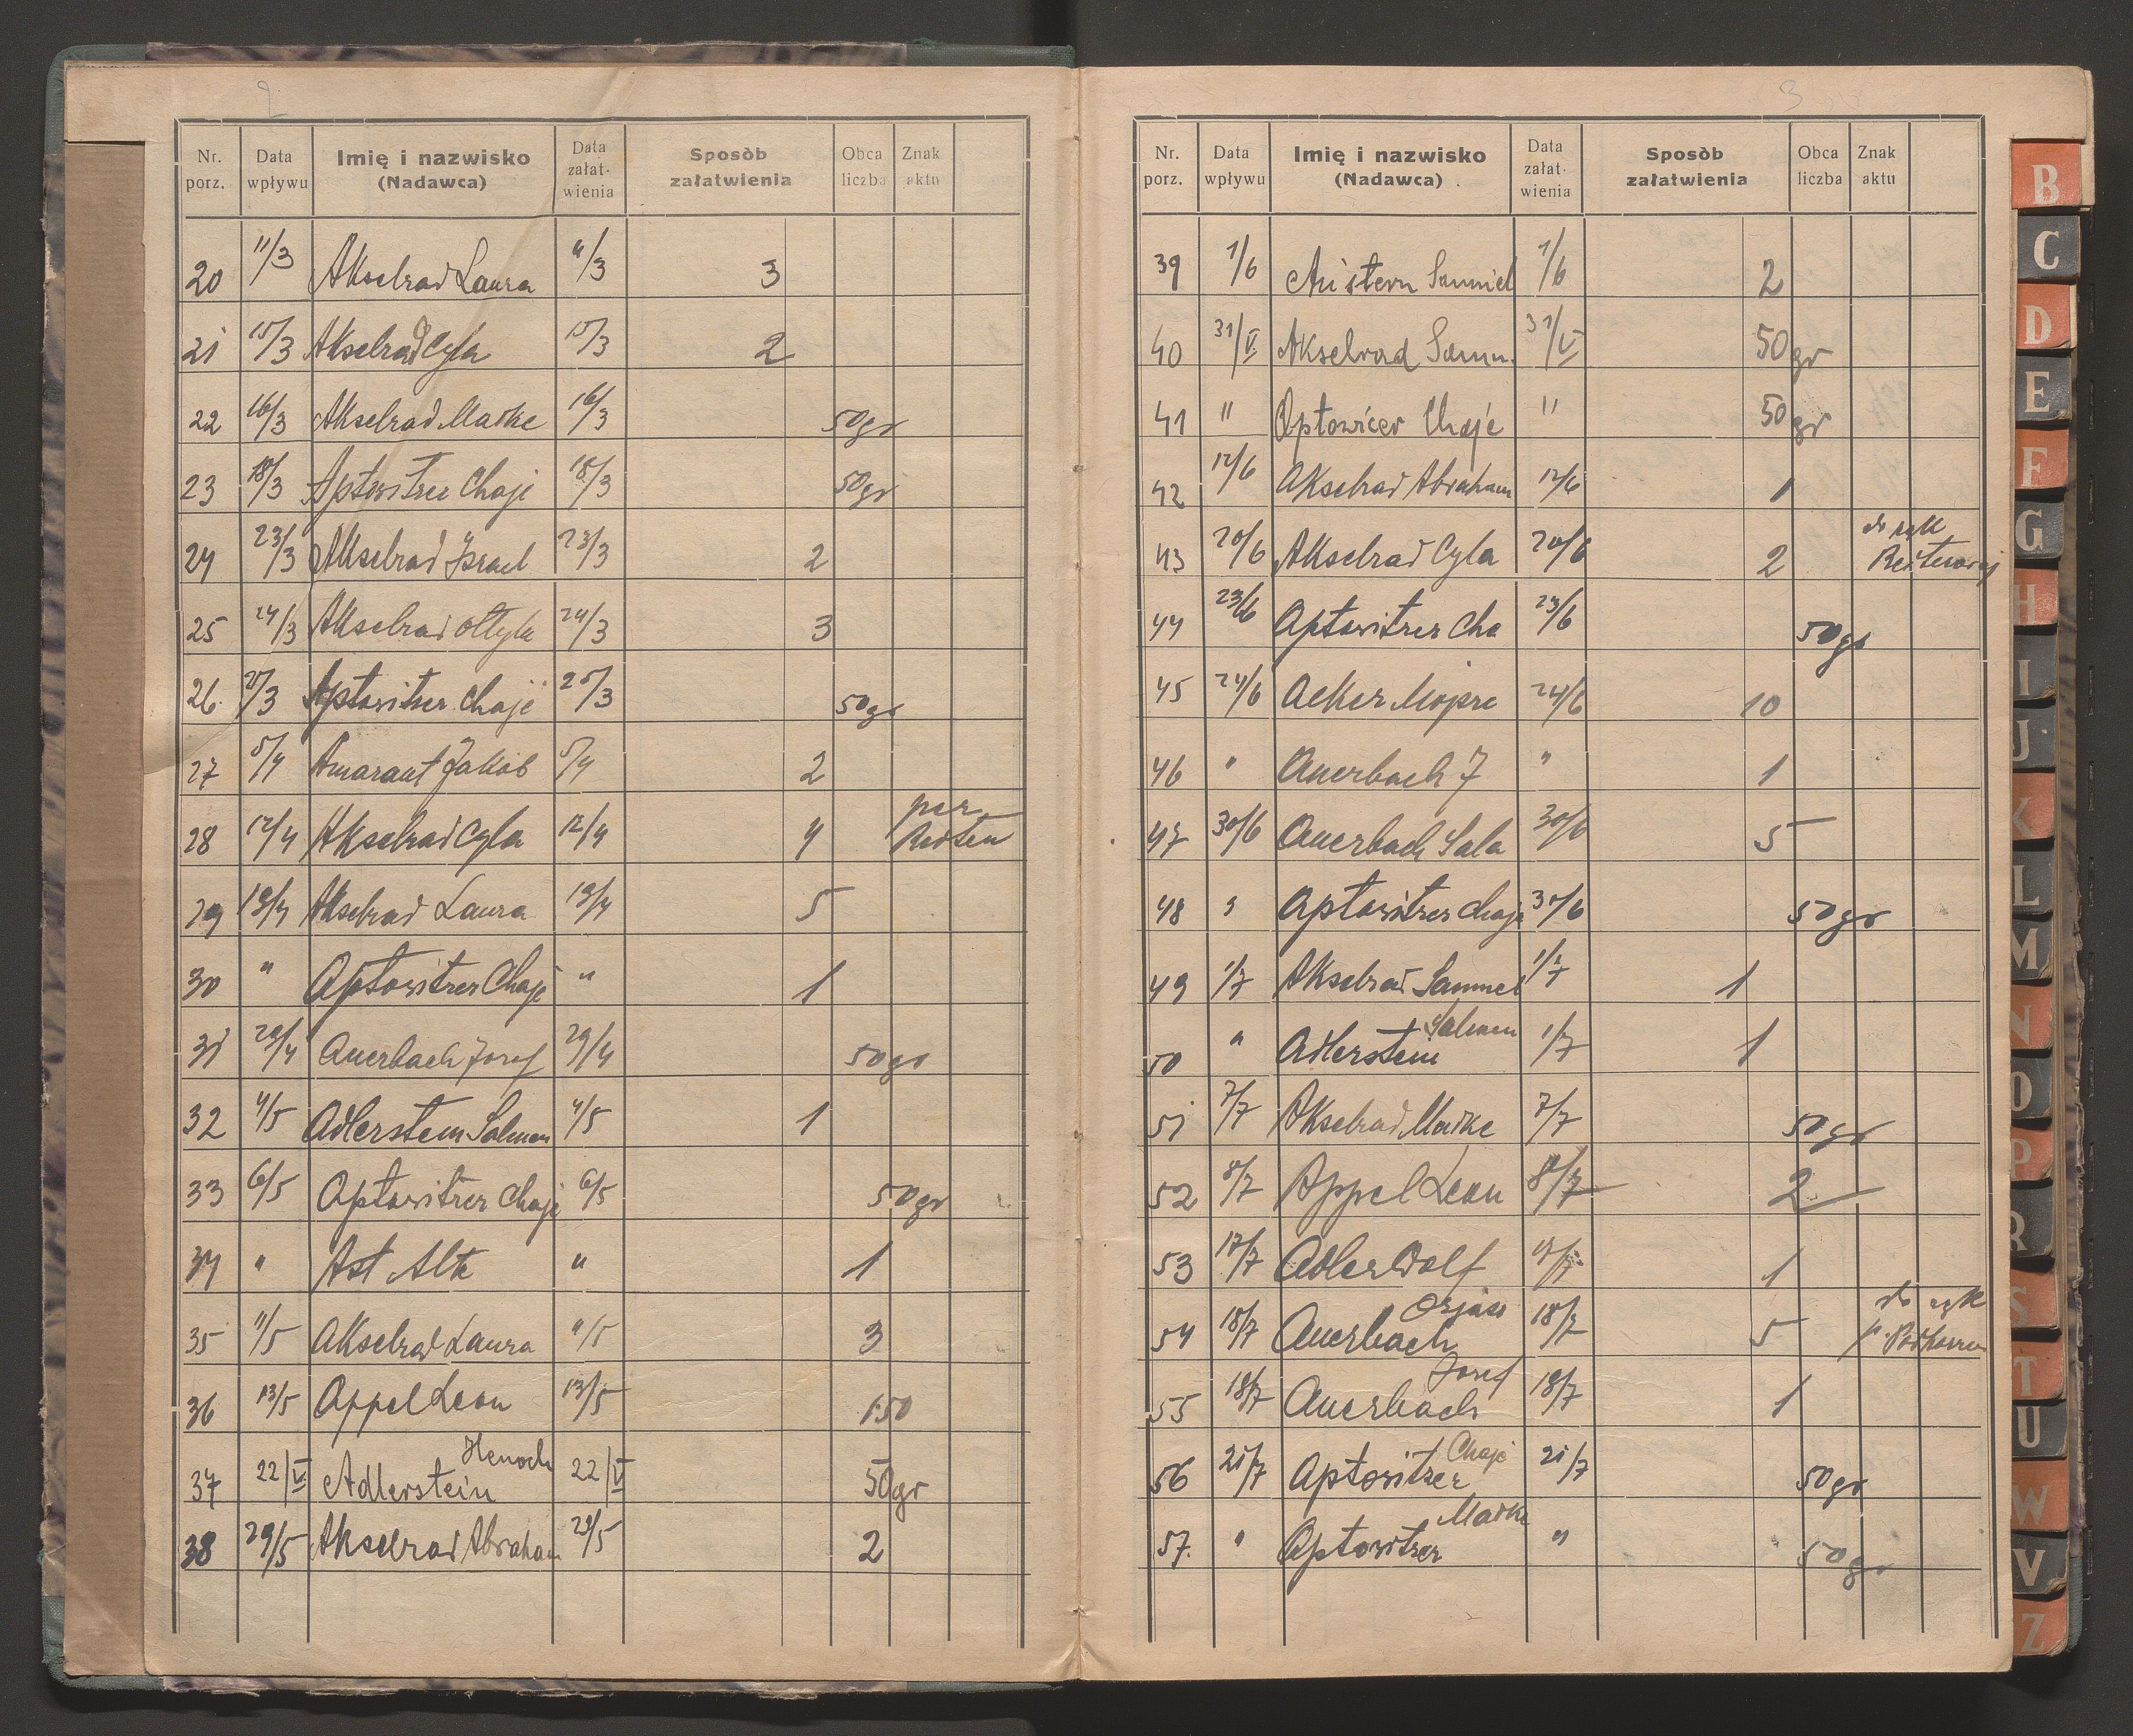 2
Nr. porz. Data wpływu Imię i nazwisko (Nadawca) Data załat-wienia Sposòb załatwienia Obca liczba Znak aktu
20 11/3 Akselrad Laura 11/3 3
21 15/3 Akselrad Cyla 15/3 2
22 16/3 Akselrad Marke 16/3 50gr
23 18/3 Aptowitzer Chaje 18/3 50gr
24 23/3 Akselrad Israel 23/3 2
25 24/3 Akselrad 24/3 3
26. 25/3 Aptowitzer Chaje 25/3 50gr
27 5/4 Amarant Jakob 5/4 2
28 12/4 Akselrad Cyla 12/4 4 per
29 19/4 Akselrad Laura 19/4 5
30 " Aptowitzer Chaje " 1
31 29/4 Auerbach Josef 29/4 50gr
32 4/5 Adlerstein Salmen 4/5 1
33 6/5 Aptowitzer Chaje 6/5 50gr
34 " Ast Alte " 1
35 11/5 Akselrad Laura 11/5 3
36 13/5 Appel Leon 13/5 1·50
37 22/V Adlerstein Henoch 22/V 50gr
38 29/5 Akselrad Abraham 29/5 2
3
Nr. porz. Data wpływu Imię i nazwisko (Nadawca) Data załat-wienia Sposòb załatwienia Obca liczba Znak aktu
39 1/6 Austern Samuel 1/6 2
40 31/V Akselrad Samu. 31/V 50gr
41 " Optowicer Chaje " 50gr
42 12/6 Akselrad Abraham 12/6 1
43 20/6 Akselrad Cyla 20/6 2 do rąk
44 23/6 Aptowitzer Cha 23/6 50gr
45 24/6 Acker 24/6 10
46 " Auerbach J " 1
47 30/6 Auerbach Sala 30/6 5
48 " Aptowitzer Chaje 30/6 50gr
49 1/7 Akselrad Samuel 1/7 1
50 " Adlerstein Salmen 1/7 1
51 7/7 Akselrad Marke 7/7 50gr
52 8/7 Appel Leon 8/7 2
53 17/7 Adler Wolf 17/7 1
54 18/7 Auerbach 18/7 5 do rąk
55 18/7 Auerbach Josef 18/7 1
56 21/7 Aptowitzer Chaje 21/7 50gr
57. " Aptowitzer Marke " 50gr
B
C
D
E
F
G
H
I
J
K
L
M
N
O
P
R
S
T
U
W
V
Z